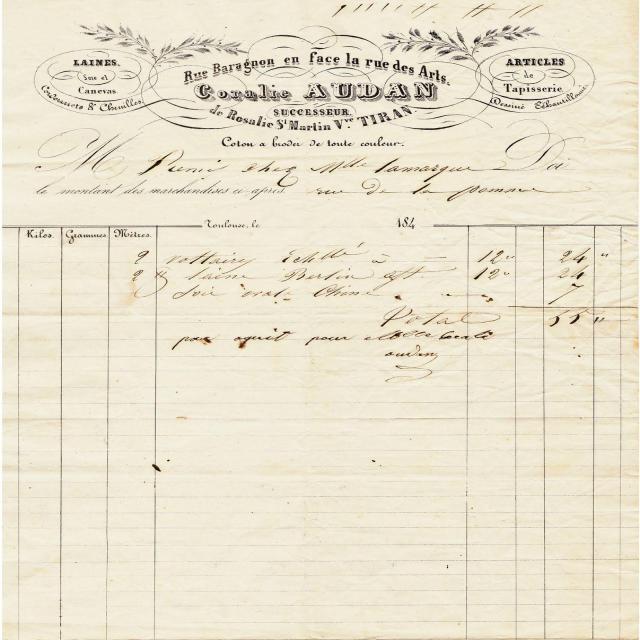 LAINES.
Soie et
Canevas
Cordonnets & Chenilles.
Rue Baragnon en face la rue des Arts.
Coralie AUDAN
SUCCESSEUR
de Rosalie St Martin Vve TIRAN.
ARTICLES
de
Tapisserie.
Dessins Echantillonnés
Coton a broder de toute couleur.
M chez Mlle Lamarque Doit
le montant des marchandises ci après. rue de la pomme
Toulouse, le 184
Kilos. Grammes. Mètres.
2 voltaire 12 " 24 "
2 laine Berlin 12 " 24
Soie Chine 7
Total 55 "
pour aquit pour Coralie
audan